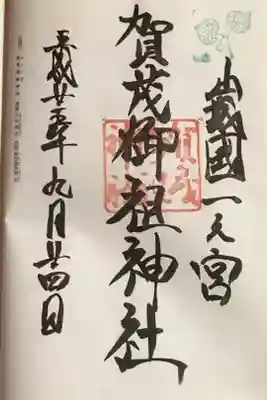 山城國一之宮
賀茂御祖神社
平成廿五年九月廿四日